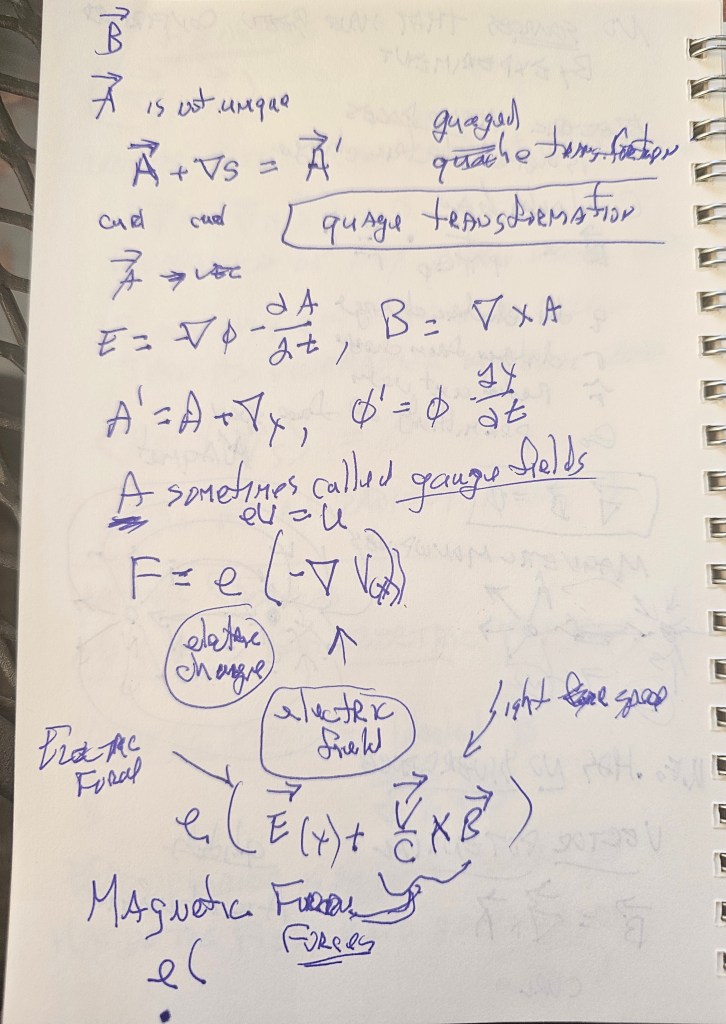 B⃗
A⃗ is not unique
A⃗ + ∇S = A⃗'
guaged
transformation
curl curl
guage TRANSFORMATION
A⃗ → vec
E = -∇ϕ - ∂A/∂t, B = ∇ × A
A' = A + ∇χ, ϕ' = ϕ ∂χ/∂t
A sometimes called gauge fields
eV = u
F = e (-∇ V(x))
electric
charge
electric
field
light speed
e ( E⃗ (x) + V⃗/C × B⃗ )
Magnetic
Forces
e(